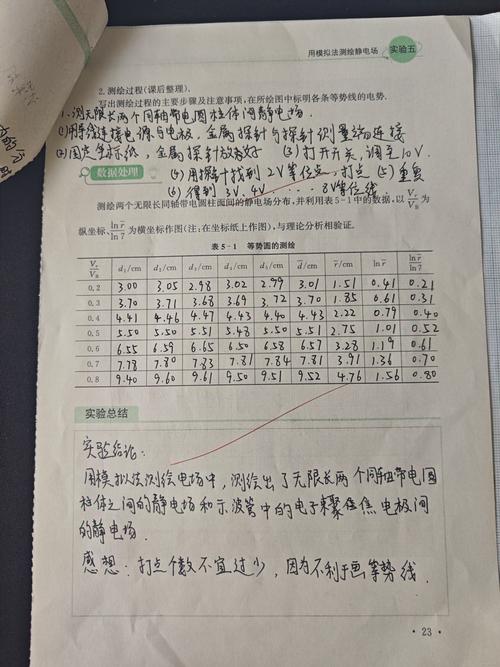 用模拟法测绘静电场 实验五
2. 测绘过程(课后整理).
写出测绘过程的主要步骤及注意事项,在所绘图中标明各条等势线的电势.
1、测无限长两个同轴带电圆柱体间静电场.
(1)用导线连接电源与电极,金属探针与探针测量端连接
(2)固定坐标纸,金属探针放好 (3)打开开关,调至10V.
数据处理 (4)用探针找到2V等位点,打点 (5)重复
(6)得到3V、4V …… 8V等位线.
测绘两个无限长同轴带电圆柱面间的静电场分布,并利用表5-1中的数据,以 Vr/VB 为
纵坐标、ln r̄/ln 7 为横坐标作图(注:在坐标纸上作图),与理论分析相验证.
表5-1 等势圆的测绘
Vr/VB d₁/cm d₂/cm d₃/cm d₄/cm d₅/cm d̄/cm r̄/cm ln r̄ ln r̄/ln 7
0.2 3.00 3.05 2.98 3.02 2.99 3.01 1.51 0.41 0.21
0.3 3.70 3.71 3.68 3.69 3.72 3.70 1.85 0.61 0.31
0.4 4.41 4.46 4.47 4.43 4.40 4.43 2.22 0.79 0.40
0.5 5.50 5.50 5.51 5.48 5.50 5.51 2.75 1.01 0.52
0.6 6.55 6.59 6.65 6.50 6.58 6.57 3.28 1.19 0.61
0.7 7.78 7.80 7.83 7.81 7.84 7.81 3.91 1.36 0.70
0.8 9.40 9.60 9.61 9.50 9.51 9.52 4.76 1.56 0.80
实验总结
实验结论:
用模拟法测绘电场中,测绘出了无限长两个同轴带电圆
柱体之间的静电场和示波管中的电子束聚焦电极间
的静电场.
感想:打点个数不宜过少,因为不利于画等势线.
· 23 ·